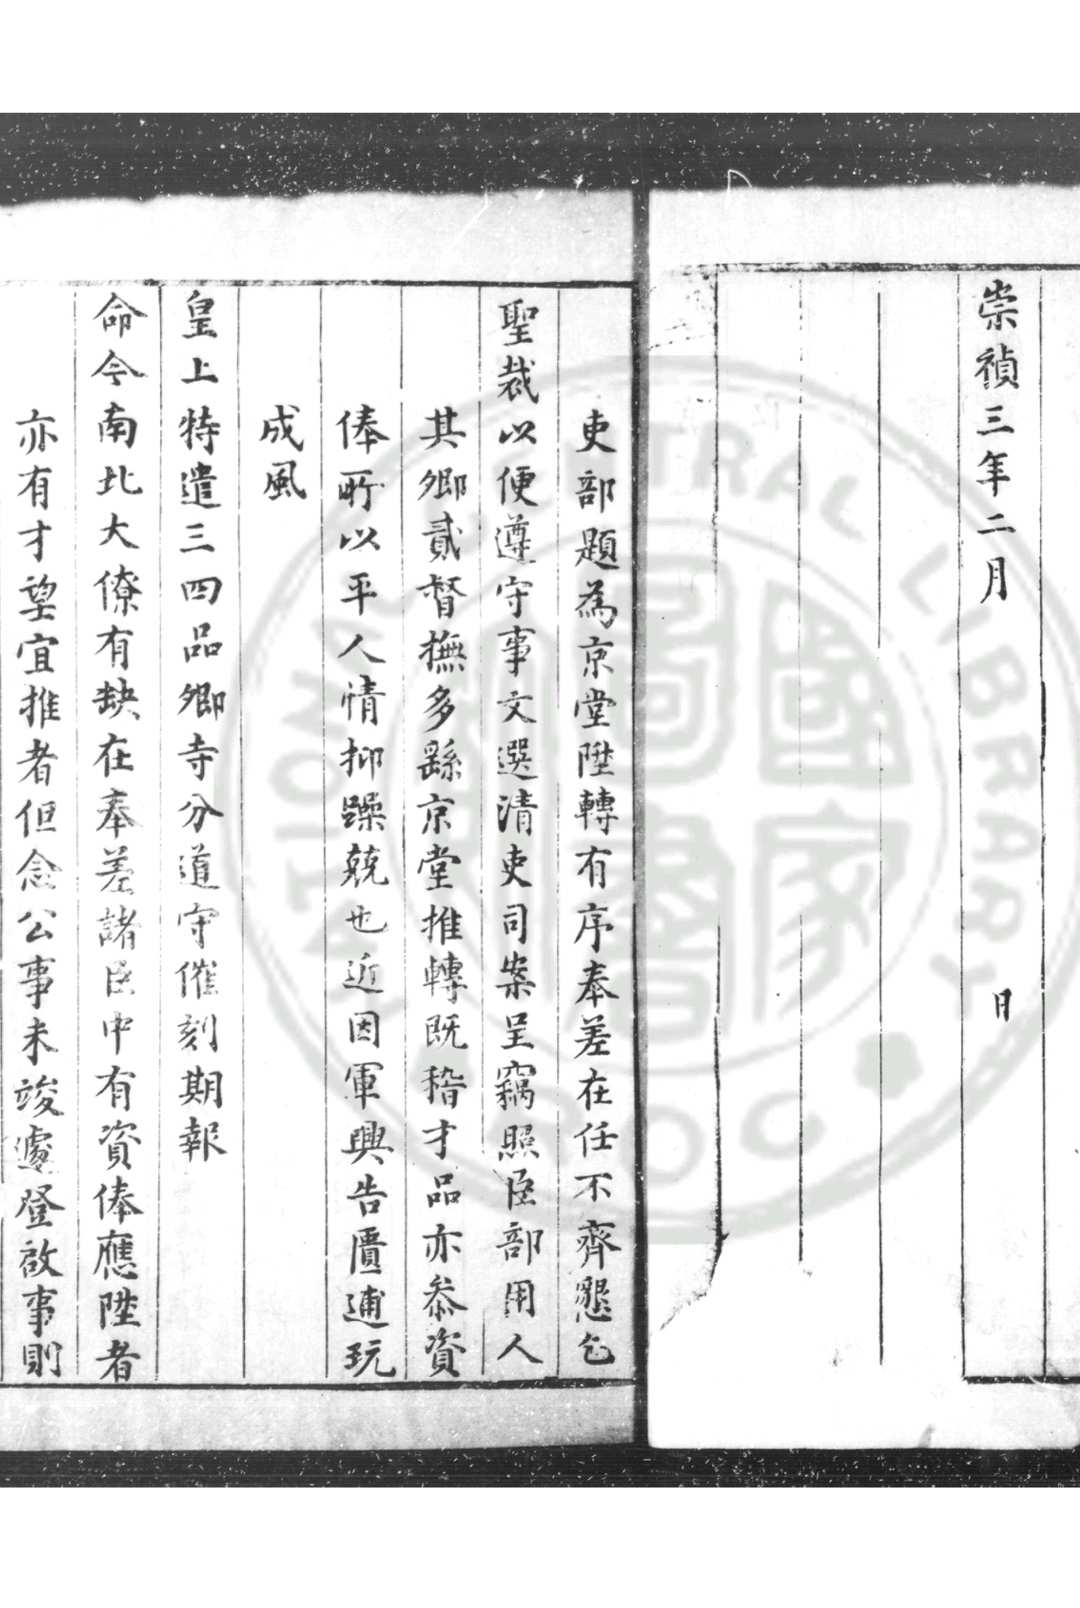 崇禎三年二月 日
吏部題為京堂陞轉有序奉差在任不齊懇乞
聖裁以便遵守事文選清吏司案呈竊照臣部用人
其卿貳督撫多繇京堂推轉既稽才品亦叅資
俸所以平人情抑躁兢也近因軍興告匱逋玩
成風
皇上特遣三四品卿寺分道守催刻期報
命今南北大僚有缺在奉差諸臣中有資俸應陞者
亦有才望宜推者但念公事未竣遽登啟事則
CENTRAL LIBRARY